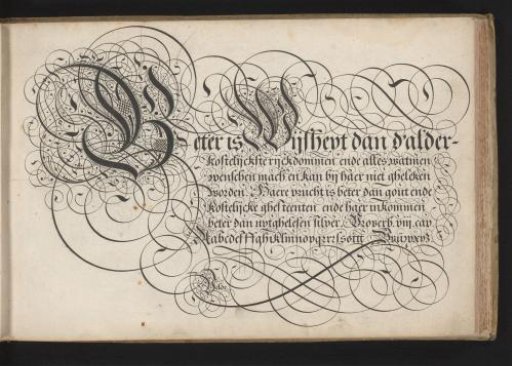 Beter is Wijsheyt dan d'alder-
kostelijckste rijckdommen ende alles watmen
wenschen mach en kan bij haer niet gheleken
worden. Haere vrucht is beter dan gout ende
kostelijcke ghesteenten ende haer inkommen
beter dan uytghelesen silver. Proverb. viij. cap